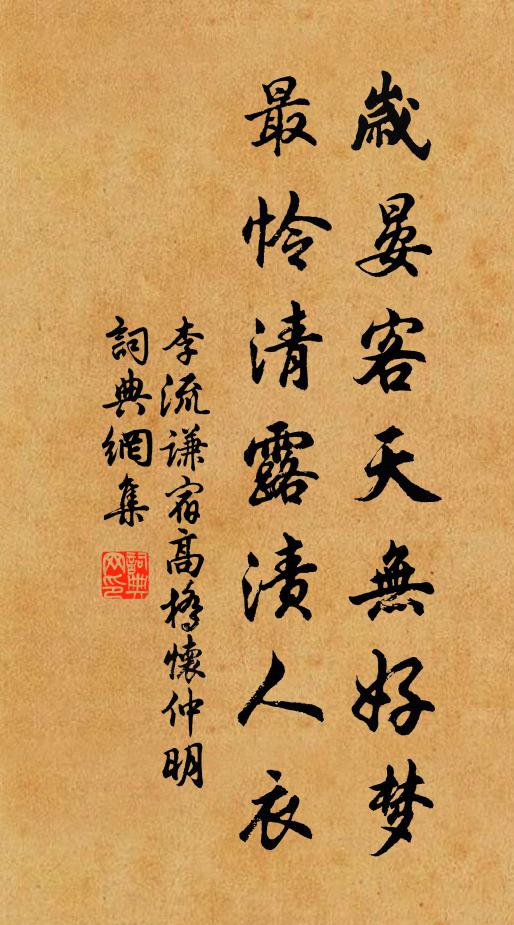 歲晏客天無好梦
最怜清露漬人衣
李流谦宿高橋懷仲明
詞典網集
詞典網印